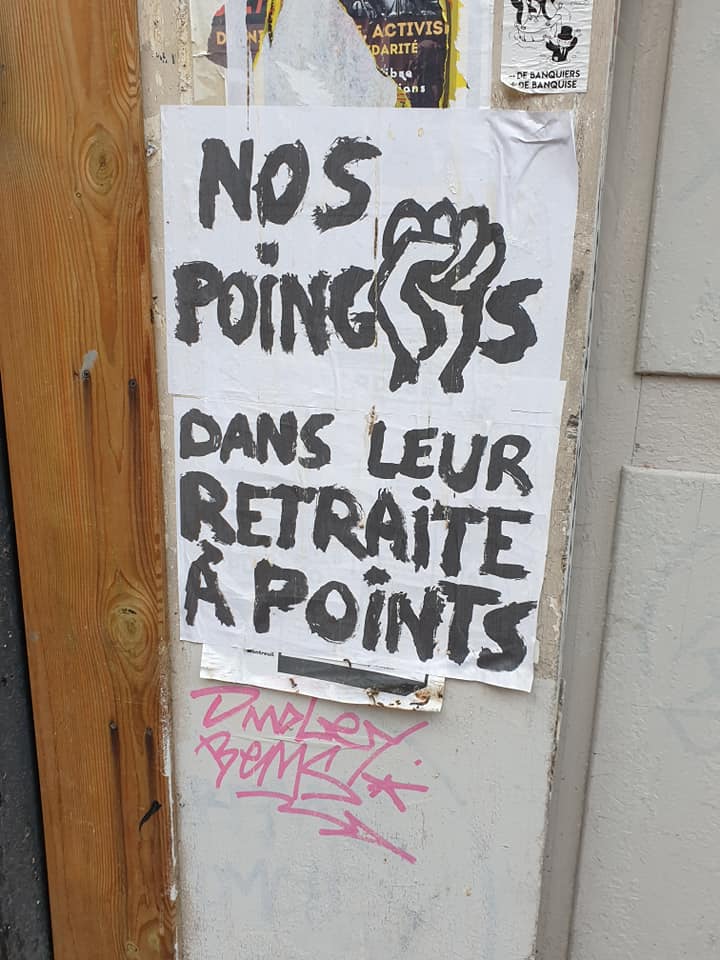 ACTIVIS
DARITÉ
DE BANQUIERS
DE BANQUISE
NOS
POINGS
DANS LEUR
RETRAITE
À POINTS